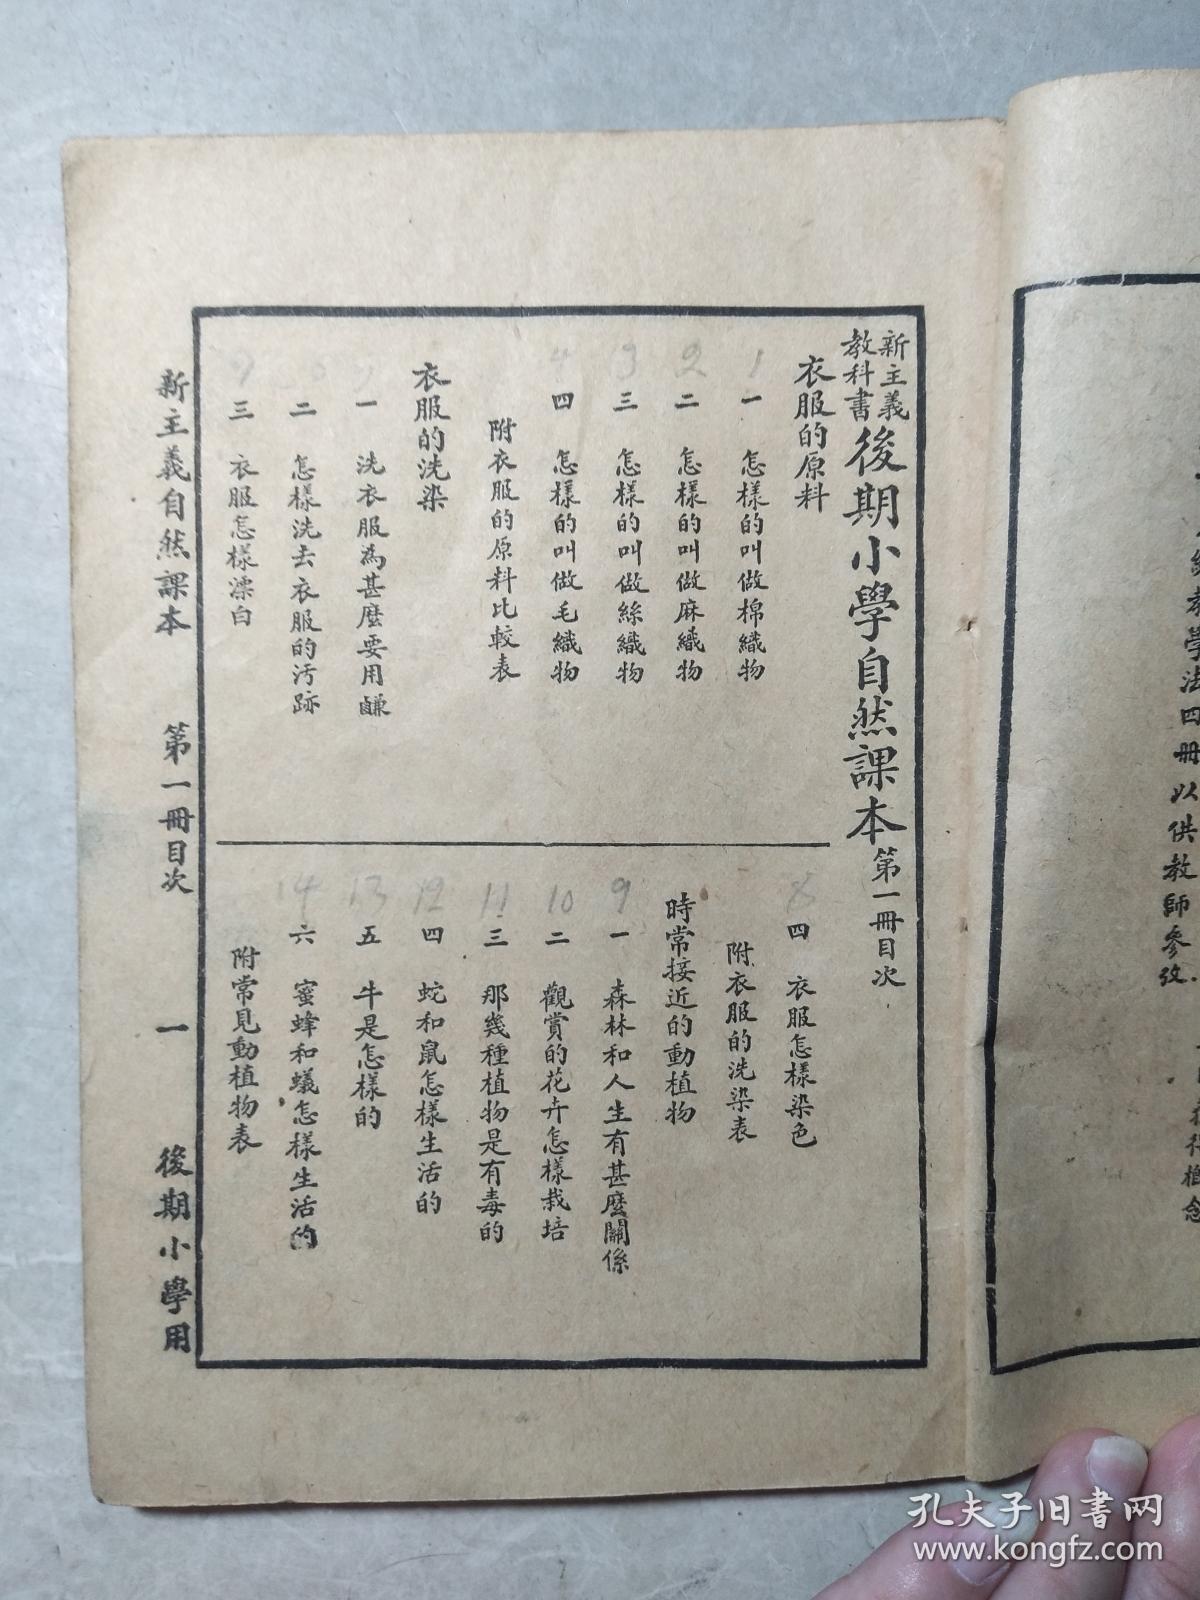 新主義
教科書
後期小學自然課本第一冊目次
衣服的原料
1
一 怎樣的叫做棉織物
2
二 怎樣的叫做麻織物
3
三 怎樣的叫做絲織物
4
四 怎樣的叫做毛織物
附衣服的原料比較表
衣服的洗染
一 洗衣服為甚麼要用鹼
二 怎樣洗去衣服的汚跡
三 衣服怎樣漂白
四 衣服怎樣染色
附衣服的洗染表
時常接近的動植物
9
一 森林和人生有甚麼關係
10
二 觀賞的花卉怎樣栽培
11
三 那幾種植物是有毒的
12
四 蛇和鼠怎樣生活的
13
五 牛是怎樣的
14
六 蜜蜂和蟻怎樣生活的
附常見動植物表
新主義自然課本 第一冊目次 一 後期小學用
教學法四冊以供教師參攷
概念
孔夫子旧书网
www.kongfz.com